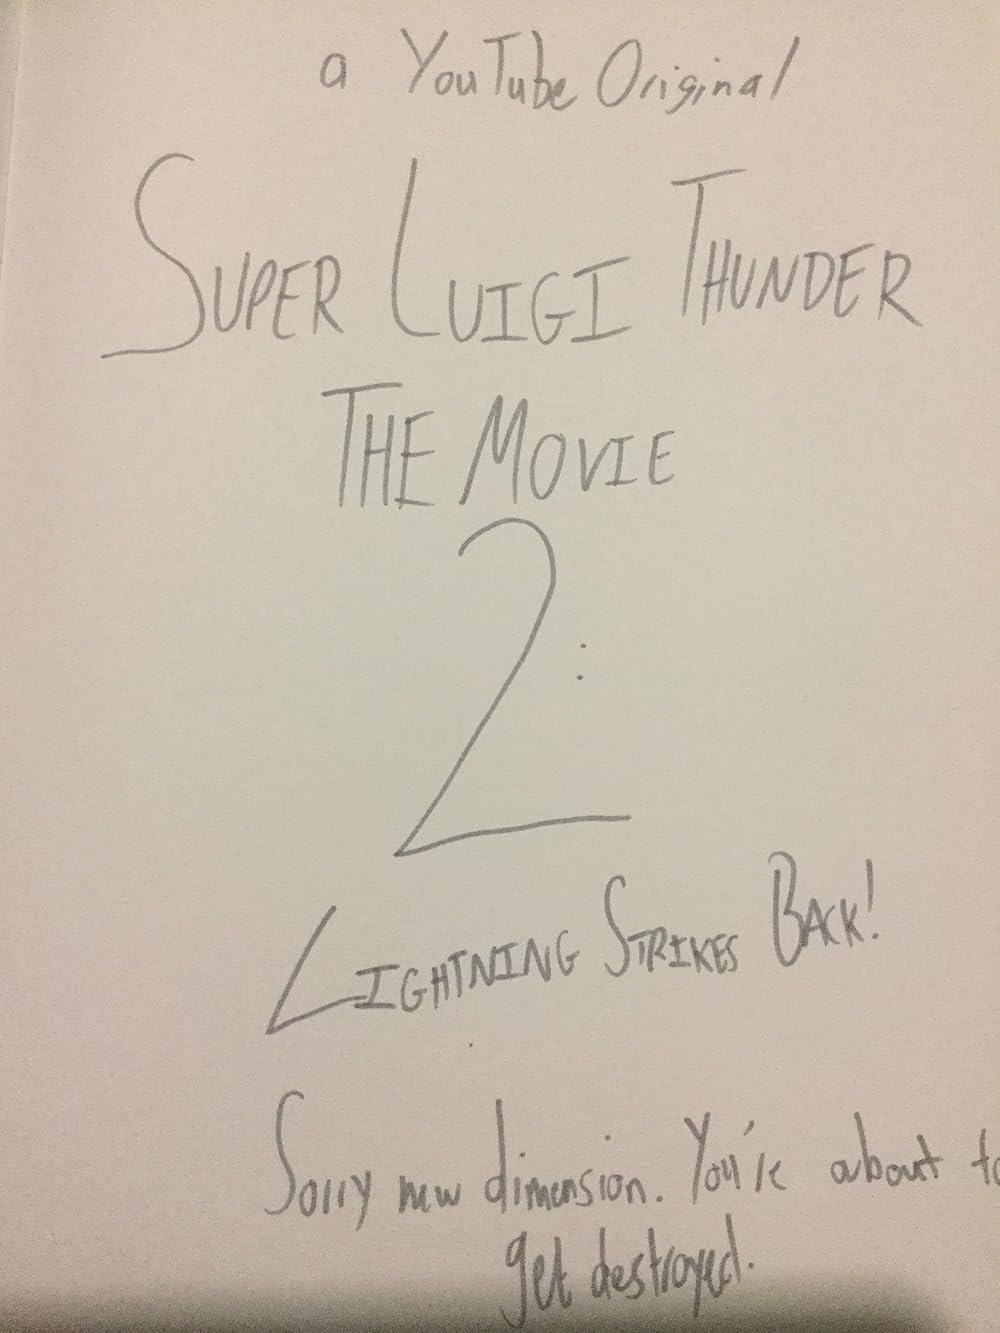 a YouTube Original
SUPER LUIGI THUNDER
THE MOVIE
2:
LIGHTNING STRIKES BACK!
Sorry new dimension. You're about to
get destroyed.